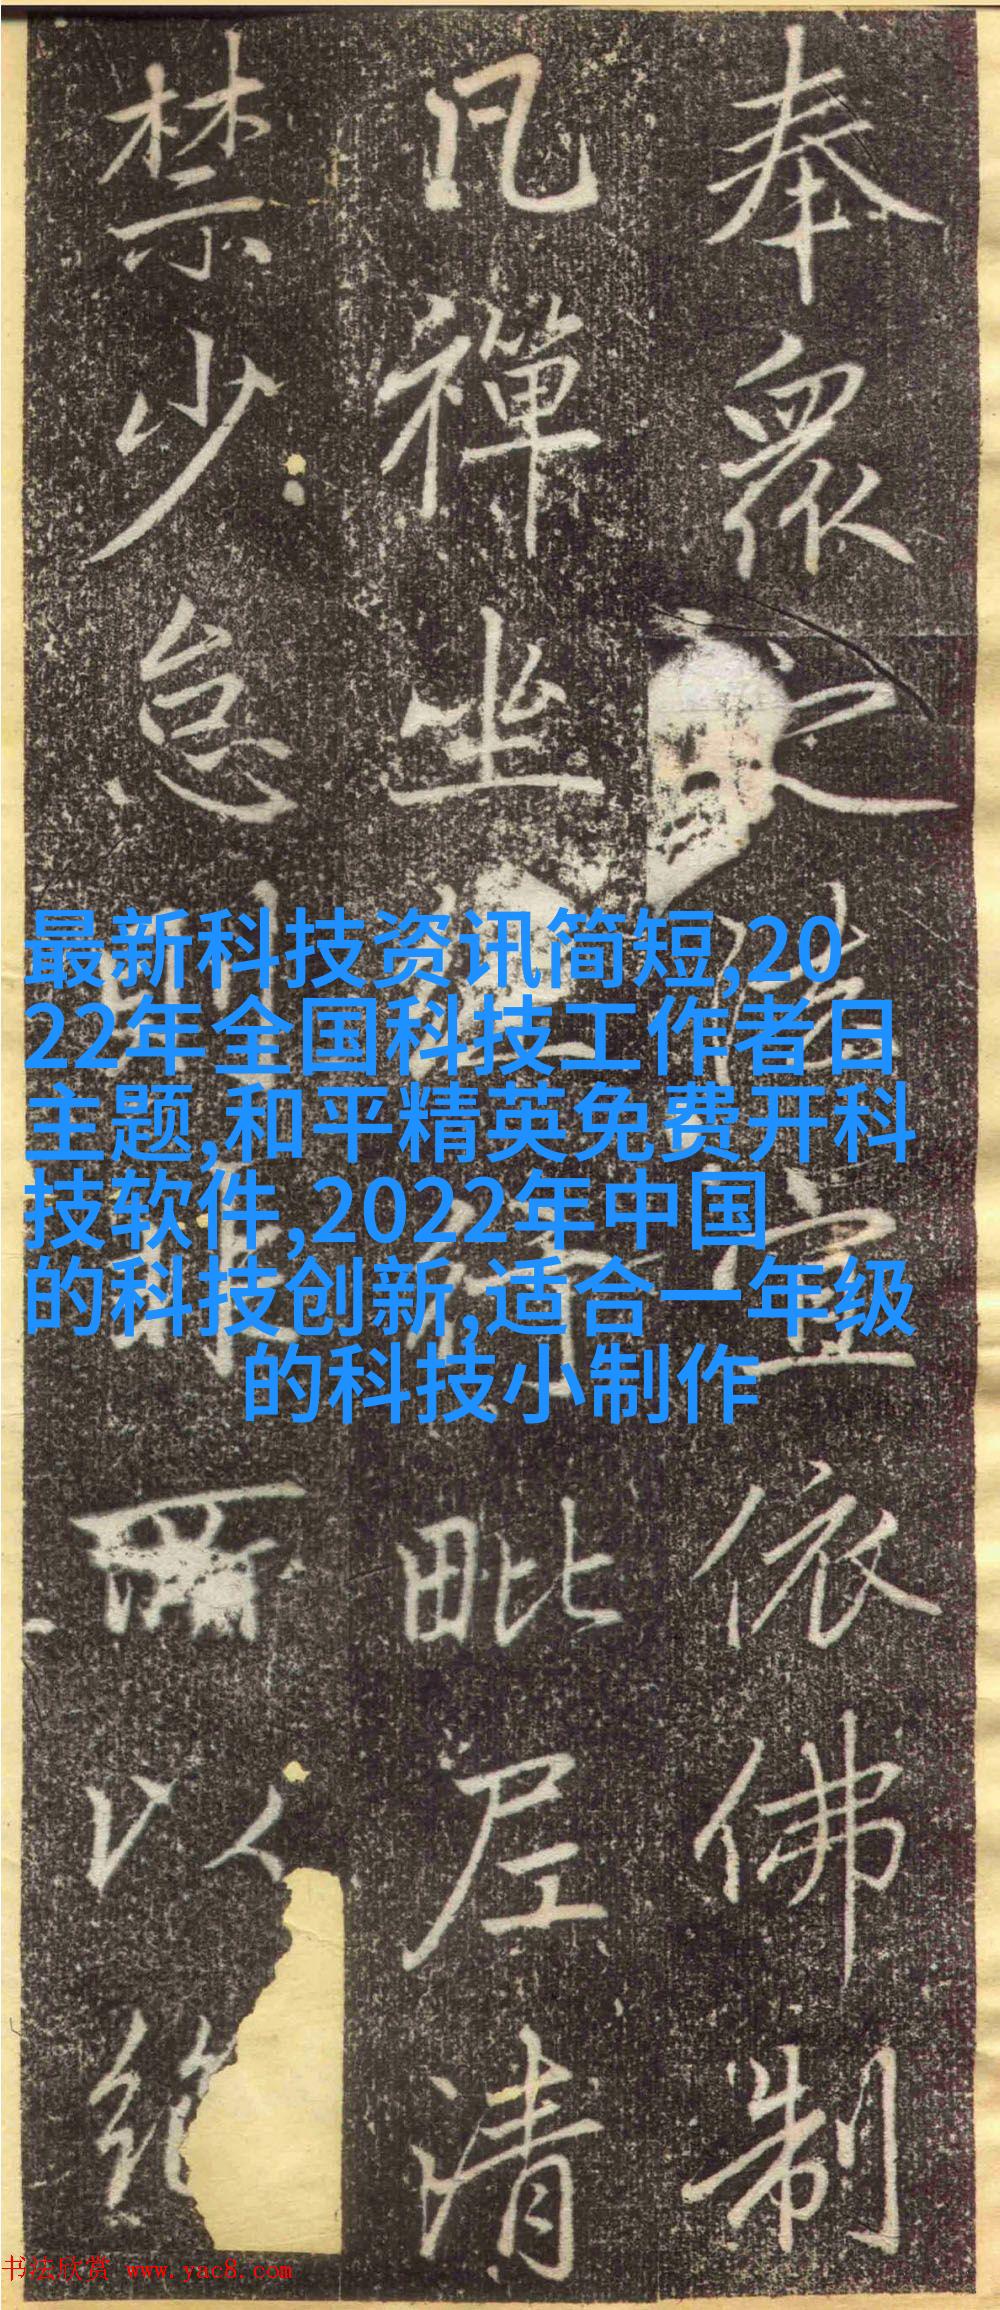 奉眾宜依佛制
凡禪坐行毗尼清
禁少怠則以
最新科技资讯简短,20
22年全国科技工作者日
主题,和平精英免费开科
技软件,2022年中国
的科技创新,适合一年级
的科技小制作
书法欣赏 www.yac8.com